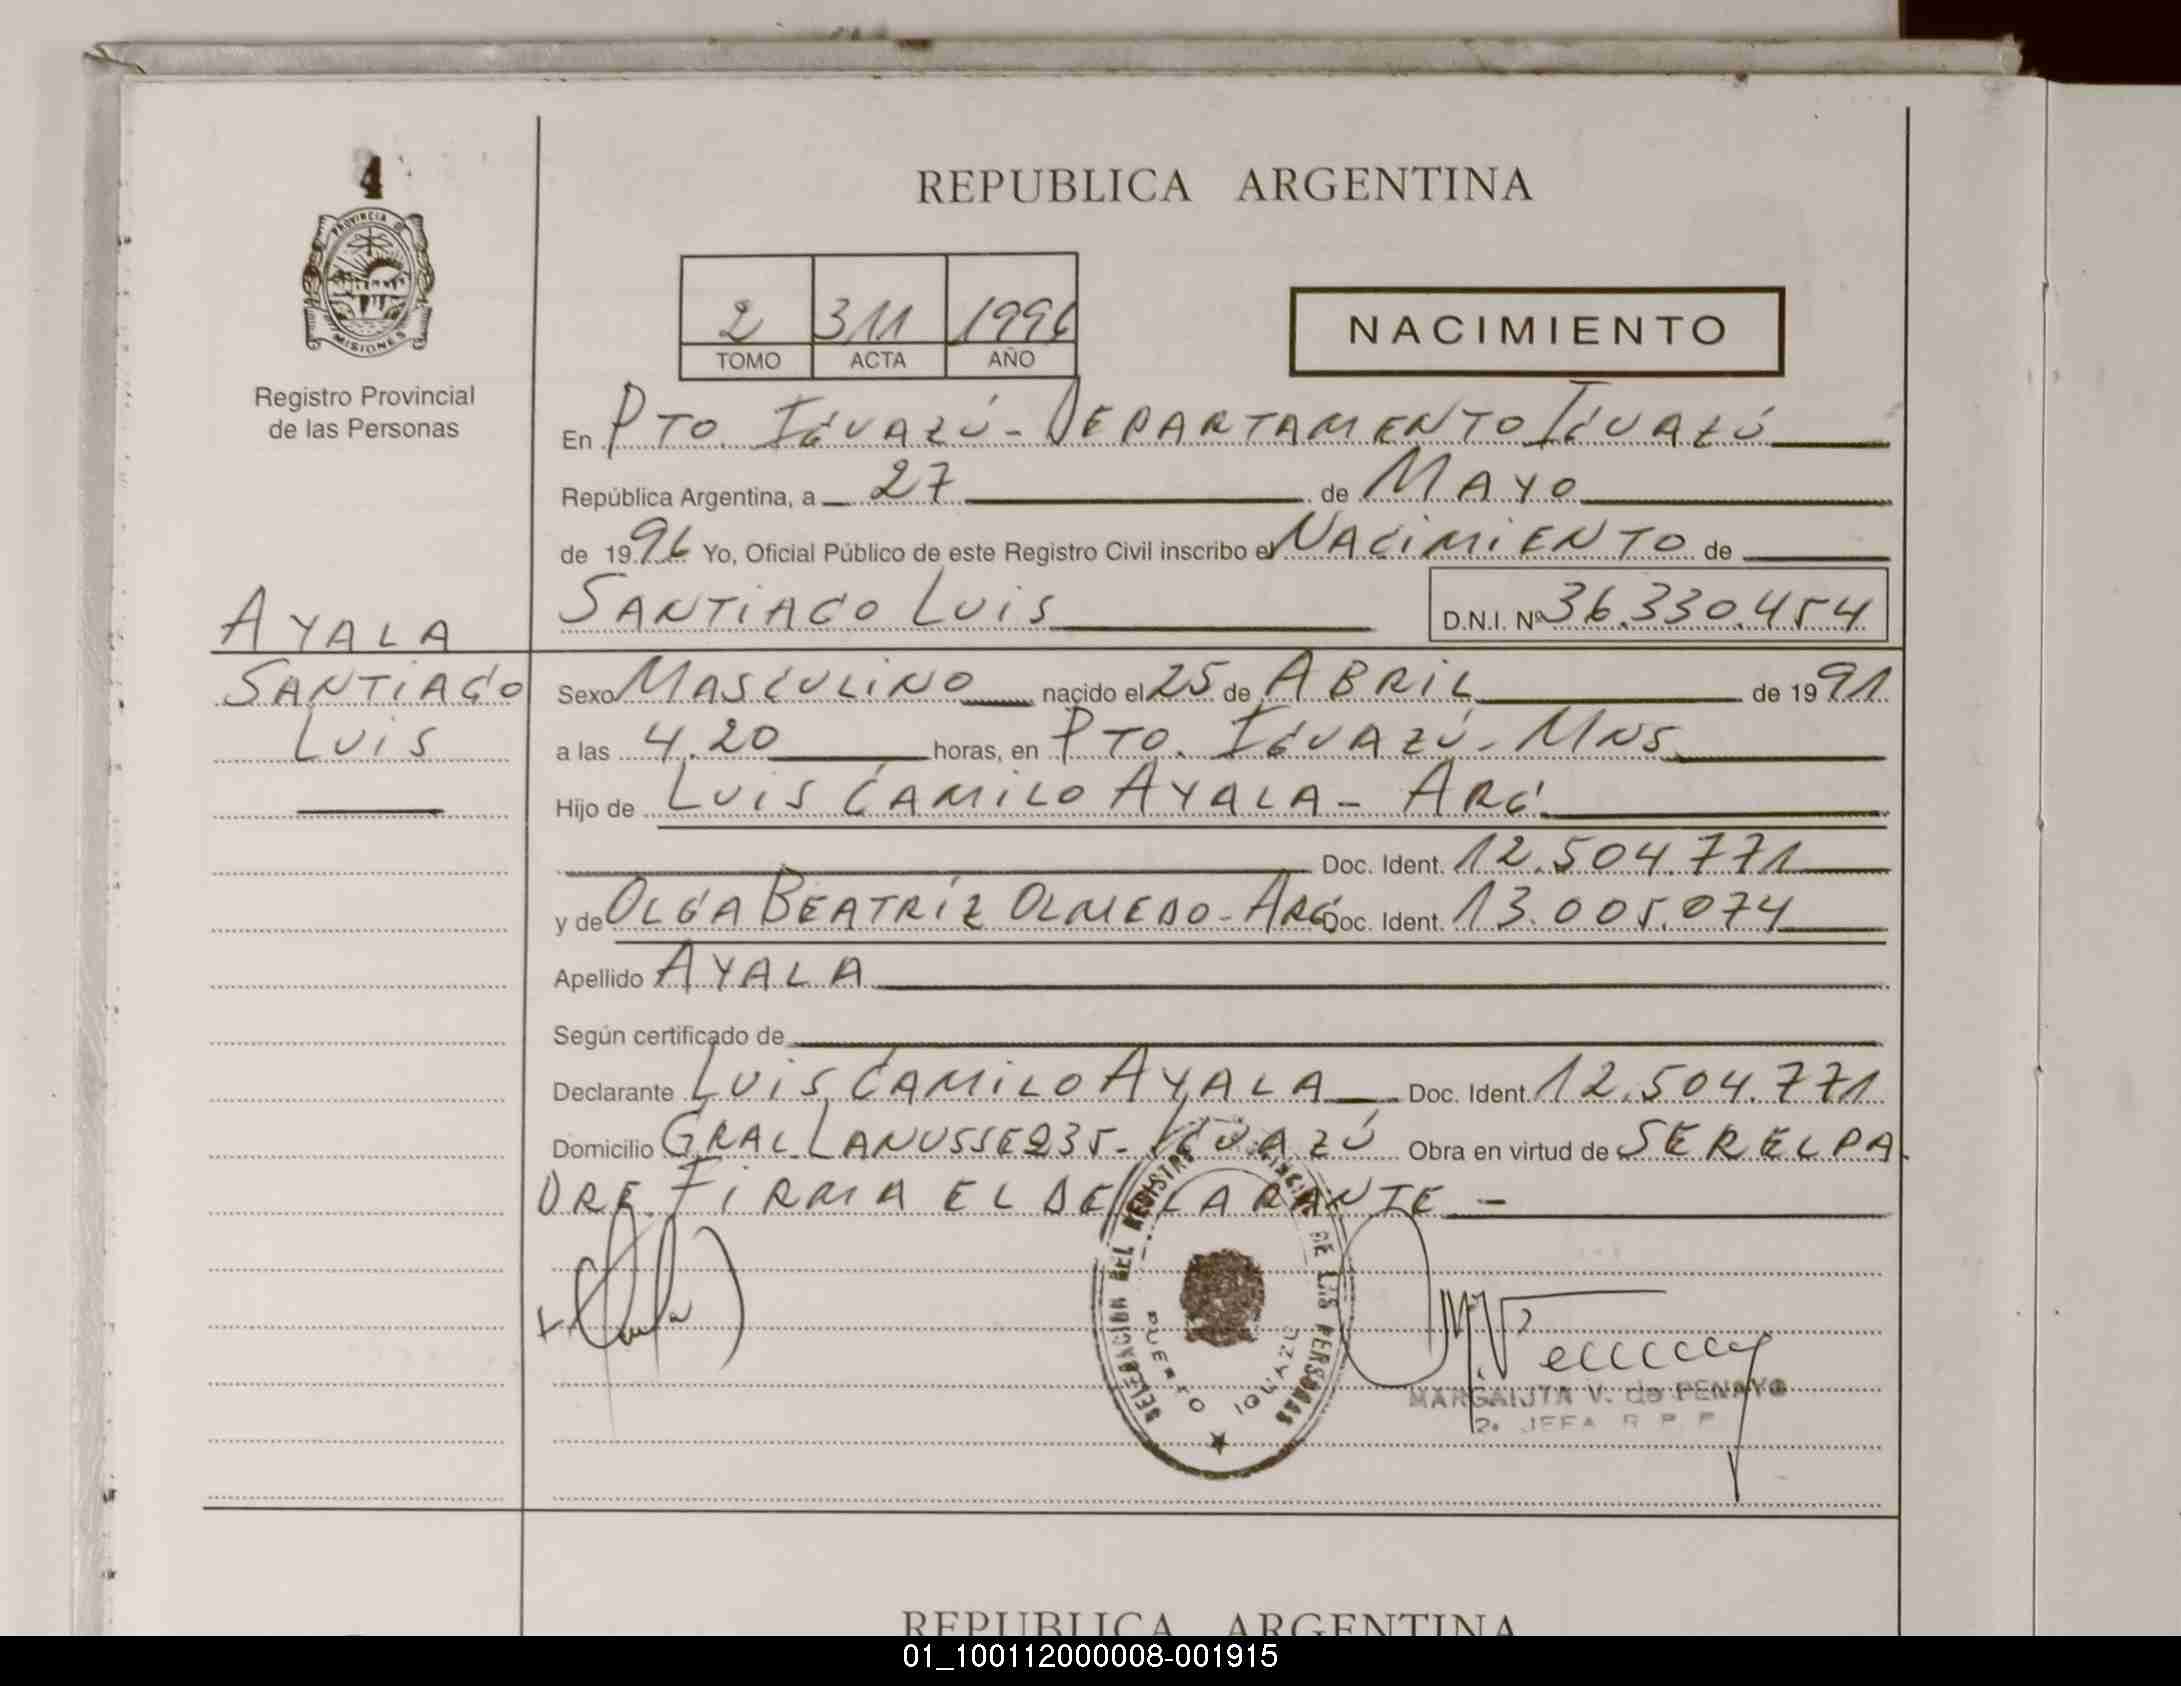 4
PROVINCIA DE
MISIONES
Registro Provincial
de las Personas
REPUBLICA ARGENTINA
2 311 1996
TOMO ACTA AÑO
NACIMIENTO
En PTO. IGUAZÚ - DEPARTAMENTO IGUAZÚ
República Argentina, a 27 de MAYO
de 1996 Yo, Oficial Público de este Registro Civil inscribo el NACIMIENTO de
SANTIAGO LUIS D.N.I. Nº 36.330.454
AYALA
SANTIAGO
LUIS
Sexo MASCULINO nacido el 25 de ABRIL de 1991
a las 4.20 horas, en PTO. IGUAZÚ - MNS
Hijo de LUIS CAMILO AYALA - ARG.
Doc. Ident. 12.504.771
y de OLGA BEATRÍZ OLMEDO - ARG Doc. Ident. 13.005.074
Apellido AYALA
Según certificado de
Declarante LUIS CAMILO AYALA Doc. Ident. 12.504.771
Domicilio GRAL LANUSSE 235 - IGUAZÚ Obra en virtud de SER EL PA
DRE. FIRMA EL DECLARANTE -
DELEGACION DEL REGISTRO PROVINCIAL DE LAS PERSONAS
PUERTO IGUAZU
MARGARITA V. de PENAYO
2a. JEFA R P P
REPUBLICA ARGENTINA
01_100112000008-001915